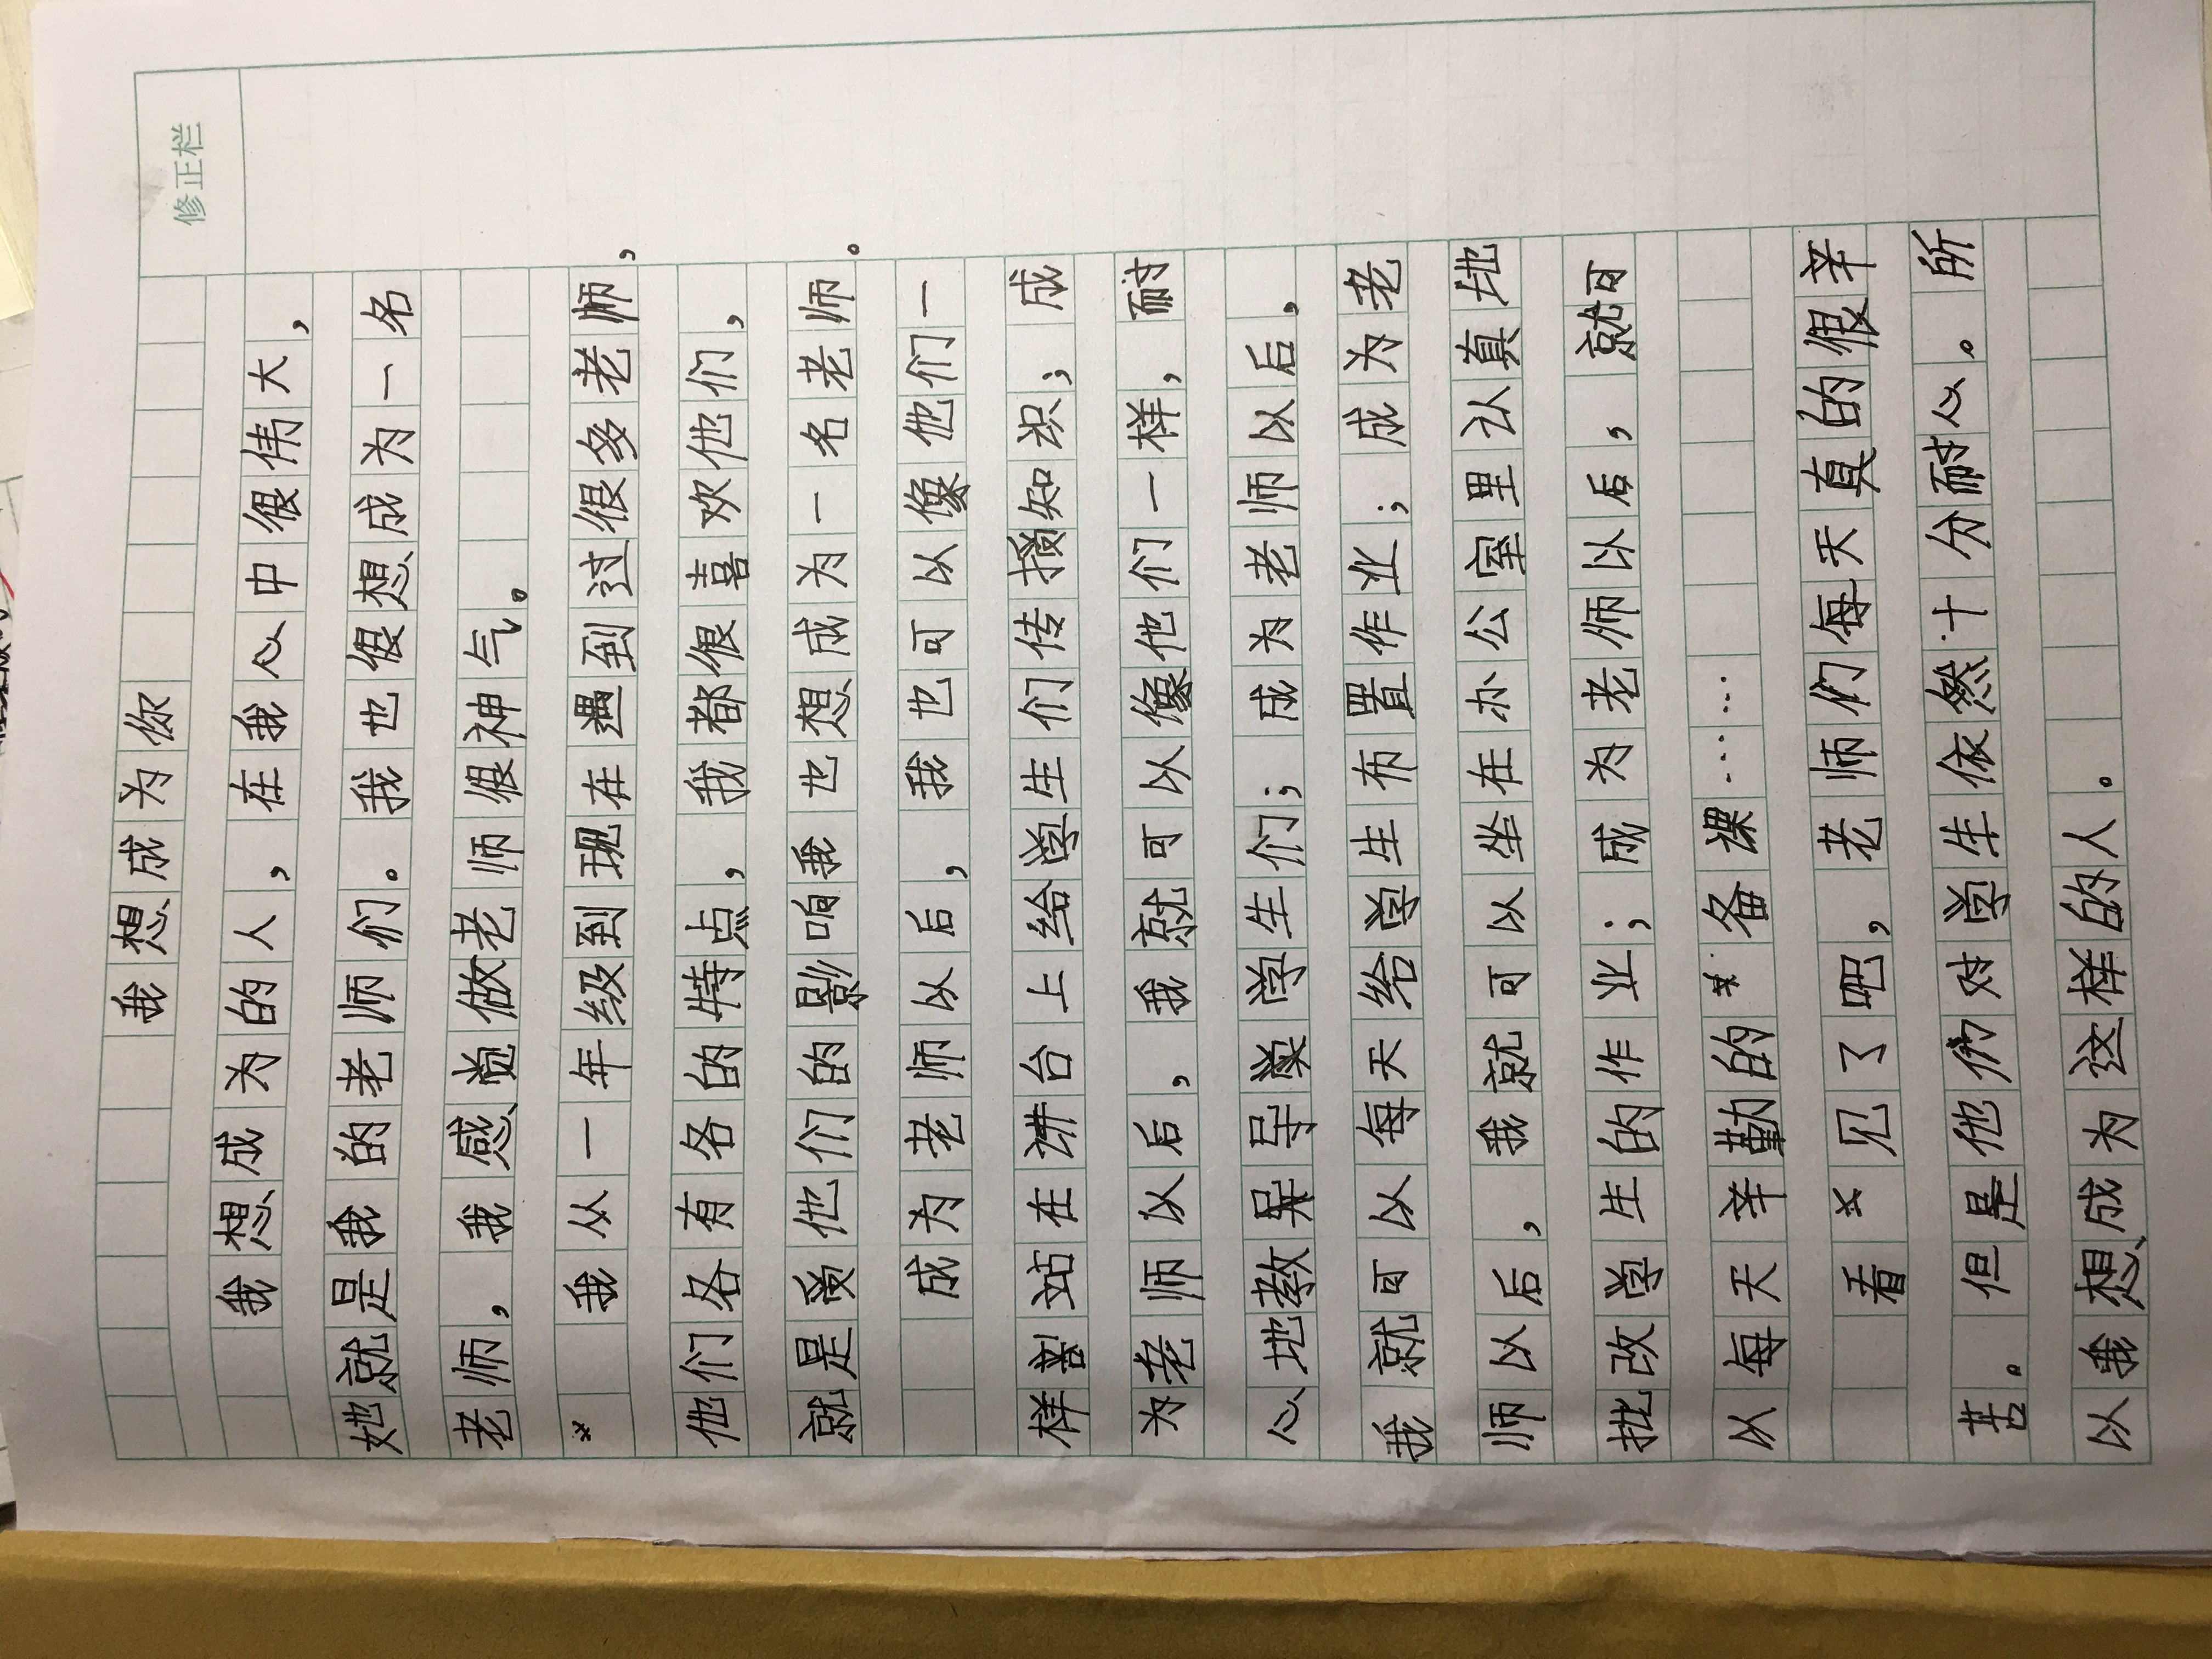 修正栏
我想成为你
我想成为的人，在我心中很伟大，
她就是我的老师们。我也很想成为一名
老师，我感觉做老师很神气。
我从一年级到现在遇到过很多老师，
他们各有各的特点，我都很喜欢他们，
就是受他们的影响我也想成为一名老师。
成为老师以后，我也可以像他们一
样站在讲台上给学生们传播知识；成
为老师以后，我就可以像他们一样，耐
心地教导学生们；成为老师以后，
我就可以每天给学生布置作业；成为老
师以后，我就可以坐在办公室里认真地
批改学生的作业；成为老师以后，就可
以每天辛勤的备课……
看见了吧，老师们每天真的很辛
苦。但是他们对学生依然十分耐心。所
以我想成为这样的人。